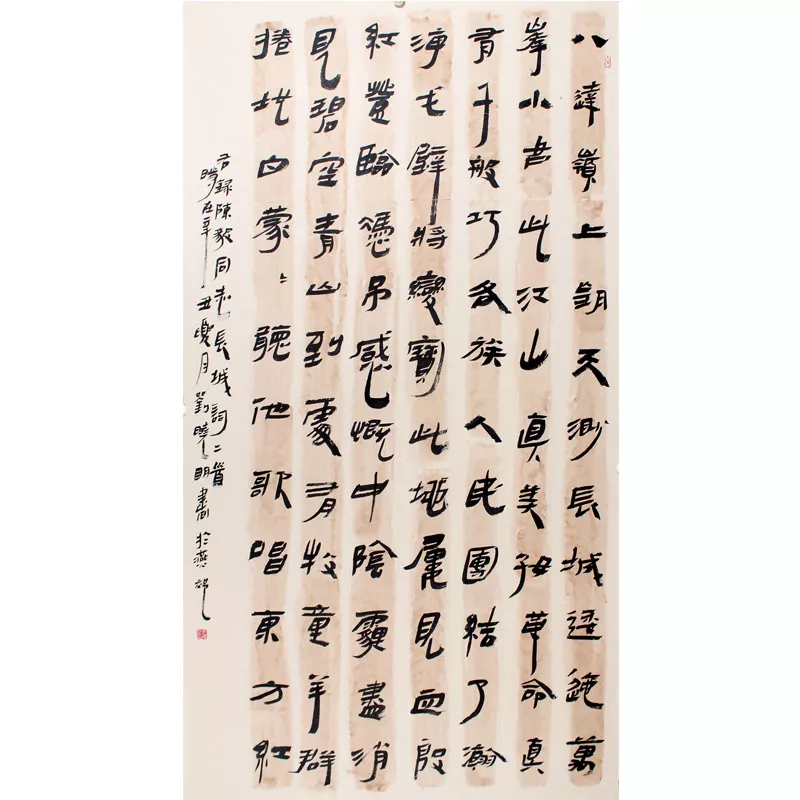 八達嶺上朔天渺長城逶迤萬
峯小此江山真美好革命真
有千般巧各族人民團結了瀚
海戈壁將變寶此地屢見血殷
紅登臨憑吊感慨中陰霾盡消
見碧空青山到處有牧童羊群
捲地白蒙々聽他歌唱東方紅
右錄陳毅同志長城詞二首
時在辛丑夏月劉曉明書於燕郊